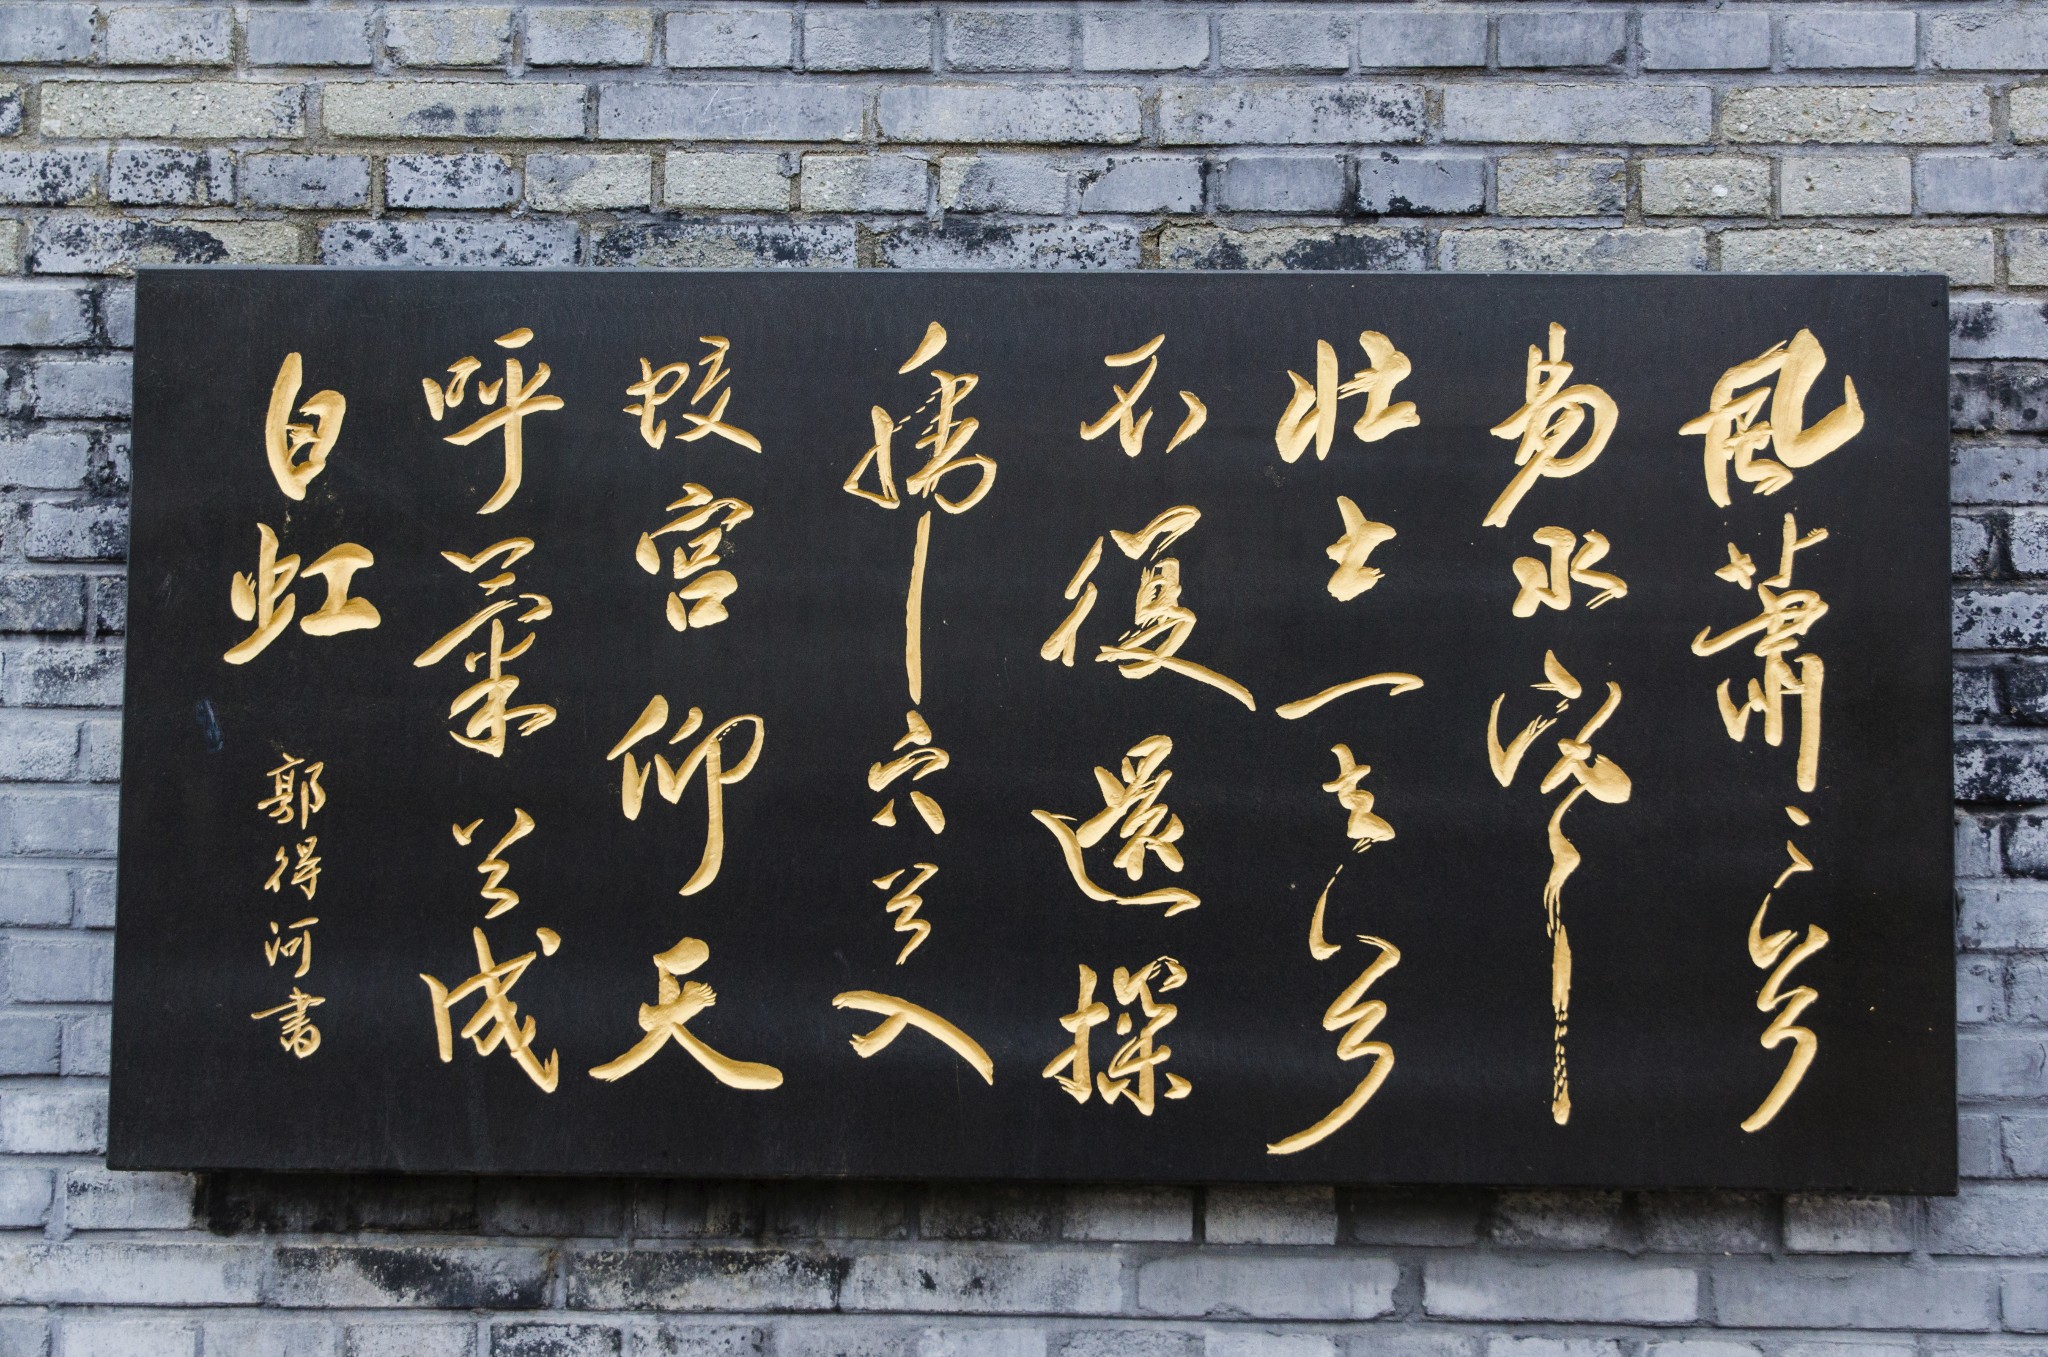 風蕭々兮
易水寒
壯士一去兮
不復還探
虎穴兮入
蛟宮仰天
呼氣兮成
白虹
郭得河書